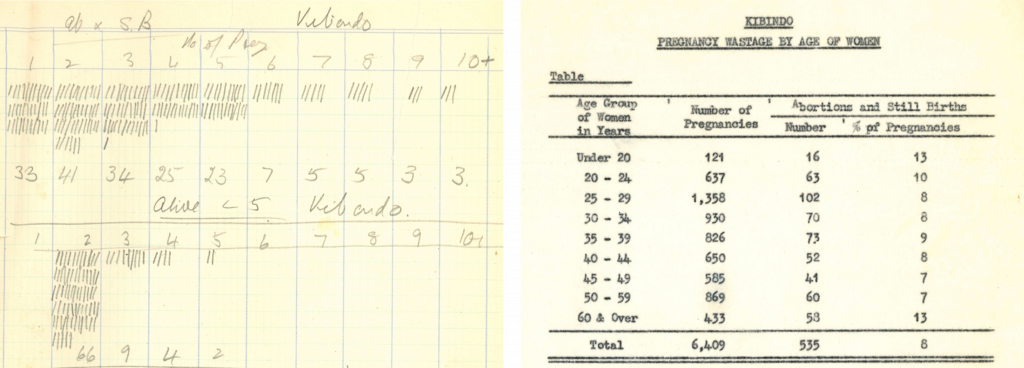 ab x S.B Kibondo
No of Preg
1 2 3 4 5 6 7 8 9 10+
33 41 34 25 23 7 5 5 3 3.
Alive < 5 Kibondo.
1 2 3 4 5 6 7 8 9 10+
66 9 4 2
KIBINDO
PREGNANCY WASTAGE BY AGE OF WOMEN
Table
Age Group of Women in Years Number of Pregnancies Abortions and Still Births
Number % pf Pregnancies
Under 20 121 16 13
20 - 24 637 63 10
25 - 29 1,358 102 8
30 - 34 930 70 8
35 - 39 826 73 9
40 - 44 650 52 8
45 - 49 585 41 7
50 - 59 869 60 7
60 & Over 433 58 13
Total 6,409 535 8